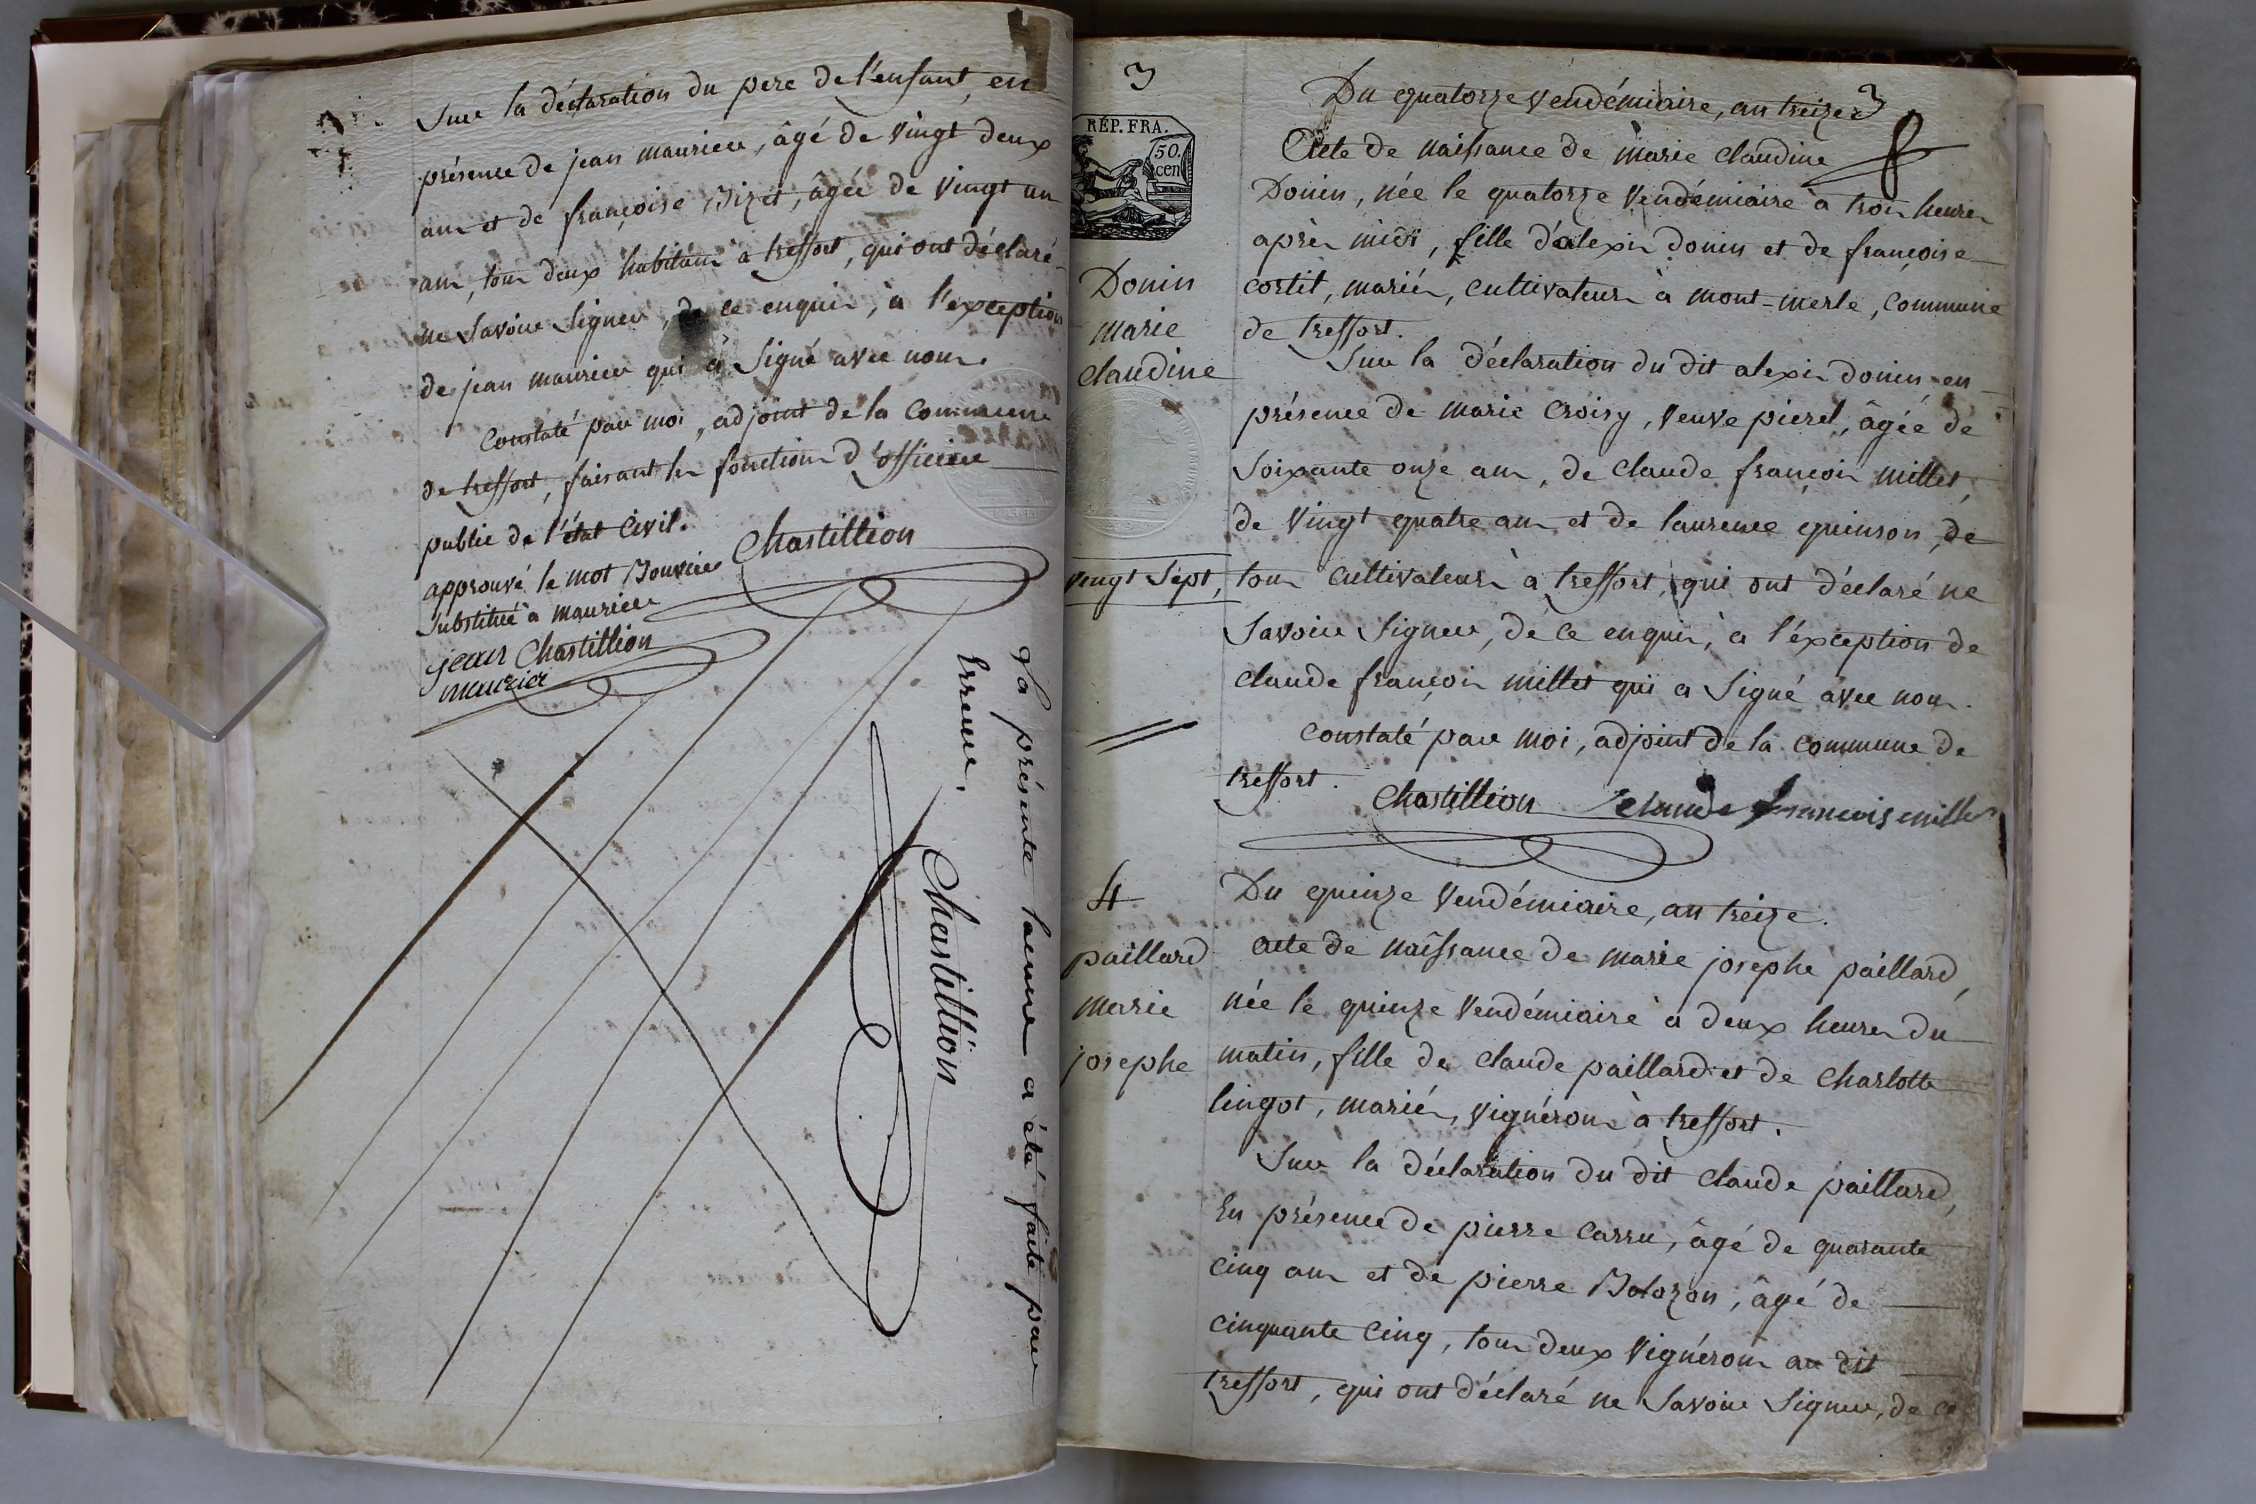 Sur la déclaration du pere de l'enfant, en
présence de jean maurier, âgé de vingt deux
ans et de françoise Bizet, âgée de vingt un
ans, tous deux habitans à treffort, qui ont déclaré
ne Savoir Signer, de ce enquis, à l'exception
de jean maurier qui a Signé avec nous.
Constaté par moi, adjoint de la Commune
de treffort, faisant les fonctions d'officier
public de l'état Civil.
approuvé le mot Bouvier
substitué à maurier
Chastillion
jean Chastillion
maurier
La présente lacune a été faite par
Erreur.
Chastillion
3
RÉP. FRA.
50.
cen
Donin
marie
claudine
vingt sept,
3
Du quatorze vendémiaire, an treize
Acte de naissance de marie claudine
Donin, née le quatorze vendémiaire à trois heures
après midi, fille d'alexis donin et de françoise
cortil, mariés, cultivateurs à mont-merle, commune
de treffort.
Sur la déclaration du dit alexis donin en
présence de marie croisy, veuve pierel, âgée de
Soixante onze ans, de claude françois millet,
de vingt quatre ans et de laurence quinson, de
tous cultivateurs à treffort, qui ont déclaré ne
Savoir Signer, de ce enquis, à l'exception de
claude françois millet qui a Signé avec nous.
constaté par moi, adjoint de la commune de
treffort.
Chastillion claude francois millet
4
paillard
marie
josephe
Du quinze vendémiaire, an treize.
acte de naissance de marie josephe paillard,
née le quinze vendémiaire à deux heures du
matin, fille de claude paillard et de charlotte
lingot, mariés, vignérons à treffort.
Sur la déclaration du dit claude paillard,
En présence de pierre carru, âgé de quarante
cinq ans et de pierre Bolozon, âgé de
cinquante cinq, tous deux vignérons au dit
treffort, qui ont déclaré ne Savoir Signer, de ce